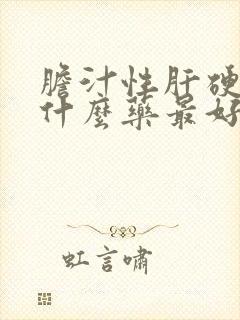 膽汁性肝硬
什麼藥最好
虹言嘯